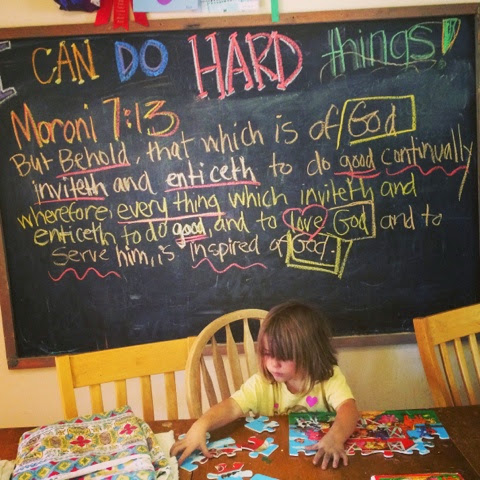 I CAN DO HARD things!
Moroni 7:13
But Behold, that which is of God
inviteth and enticeth to do good continually
wherefore, every thing which inviteth and
enticeth to do good, and to love God and to
serve him, is inspired of God.